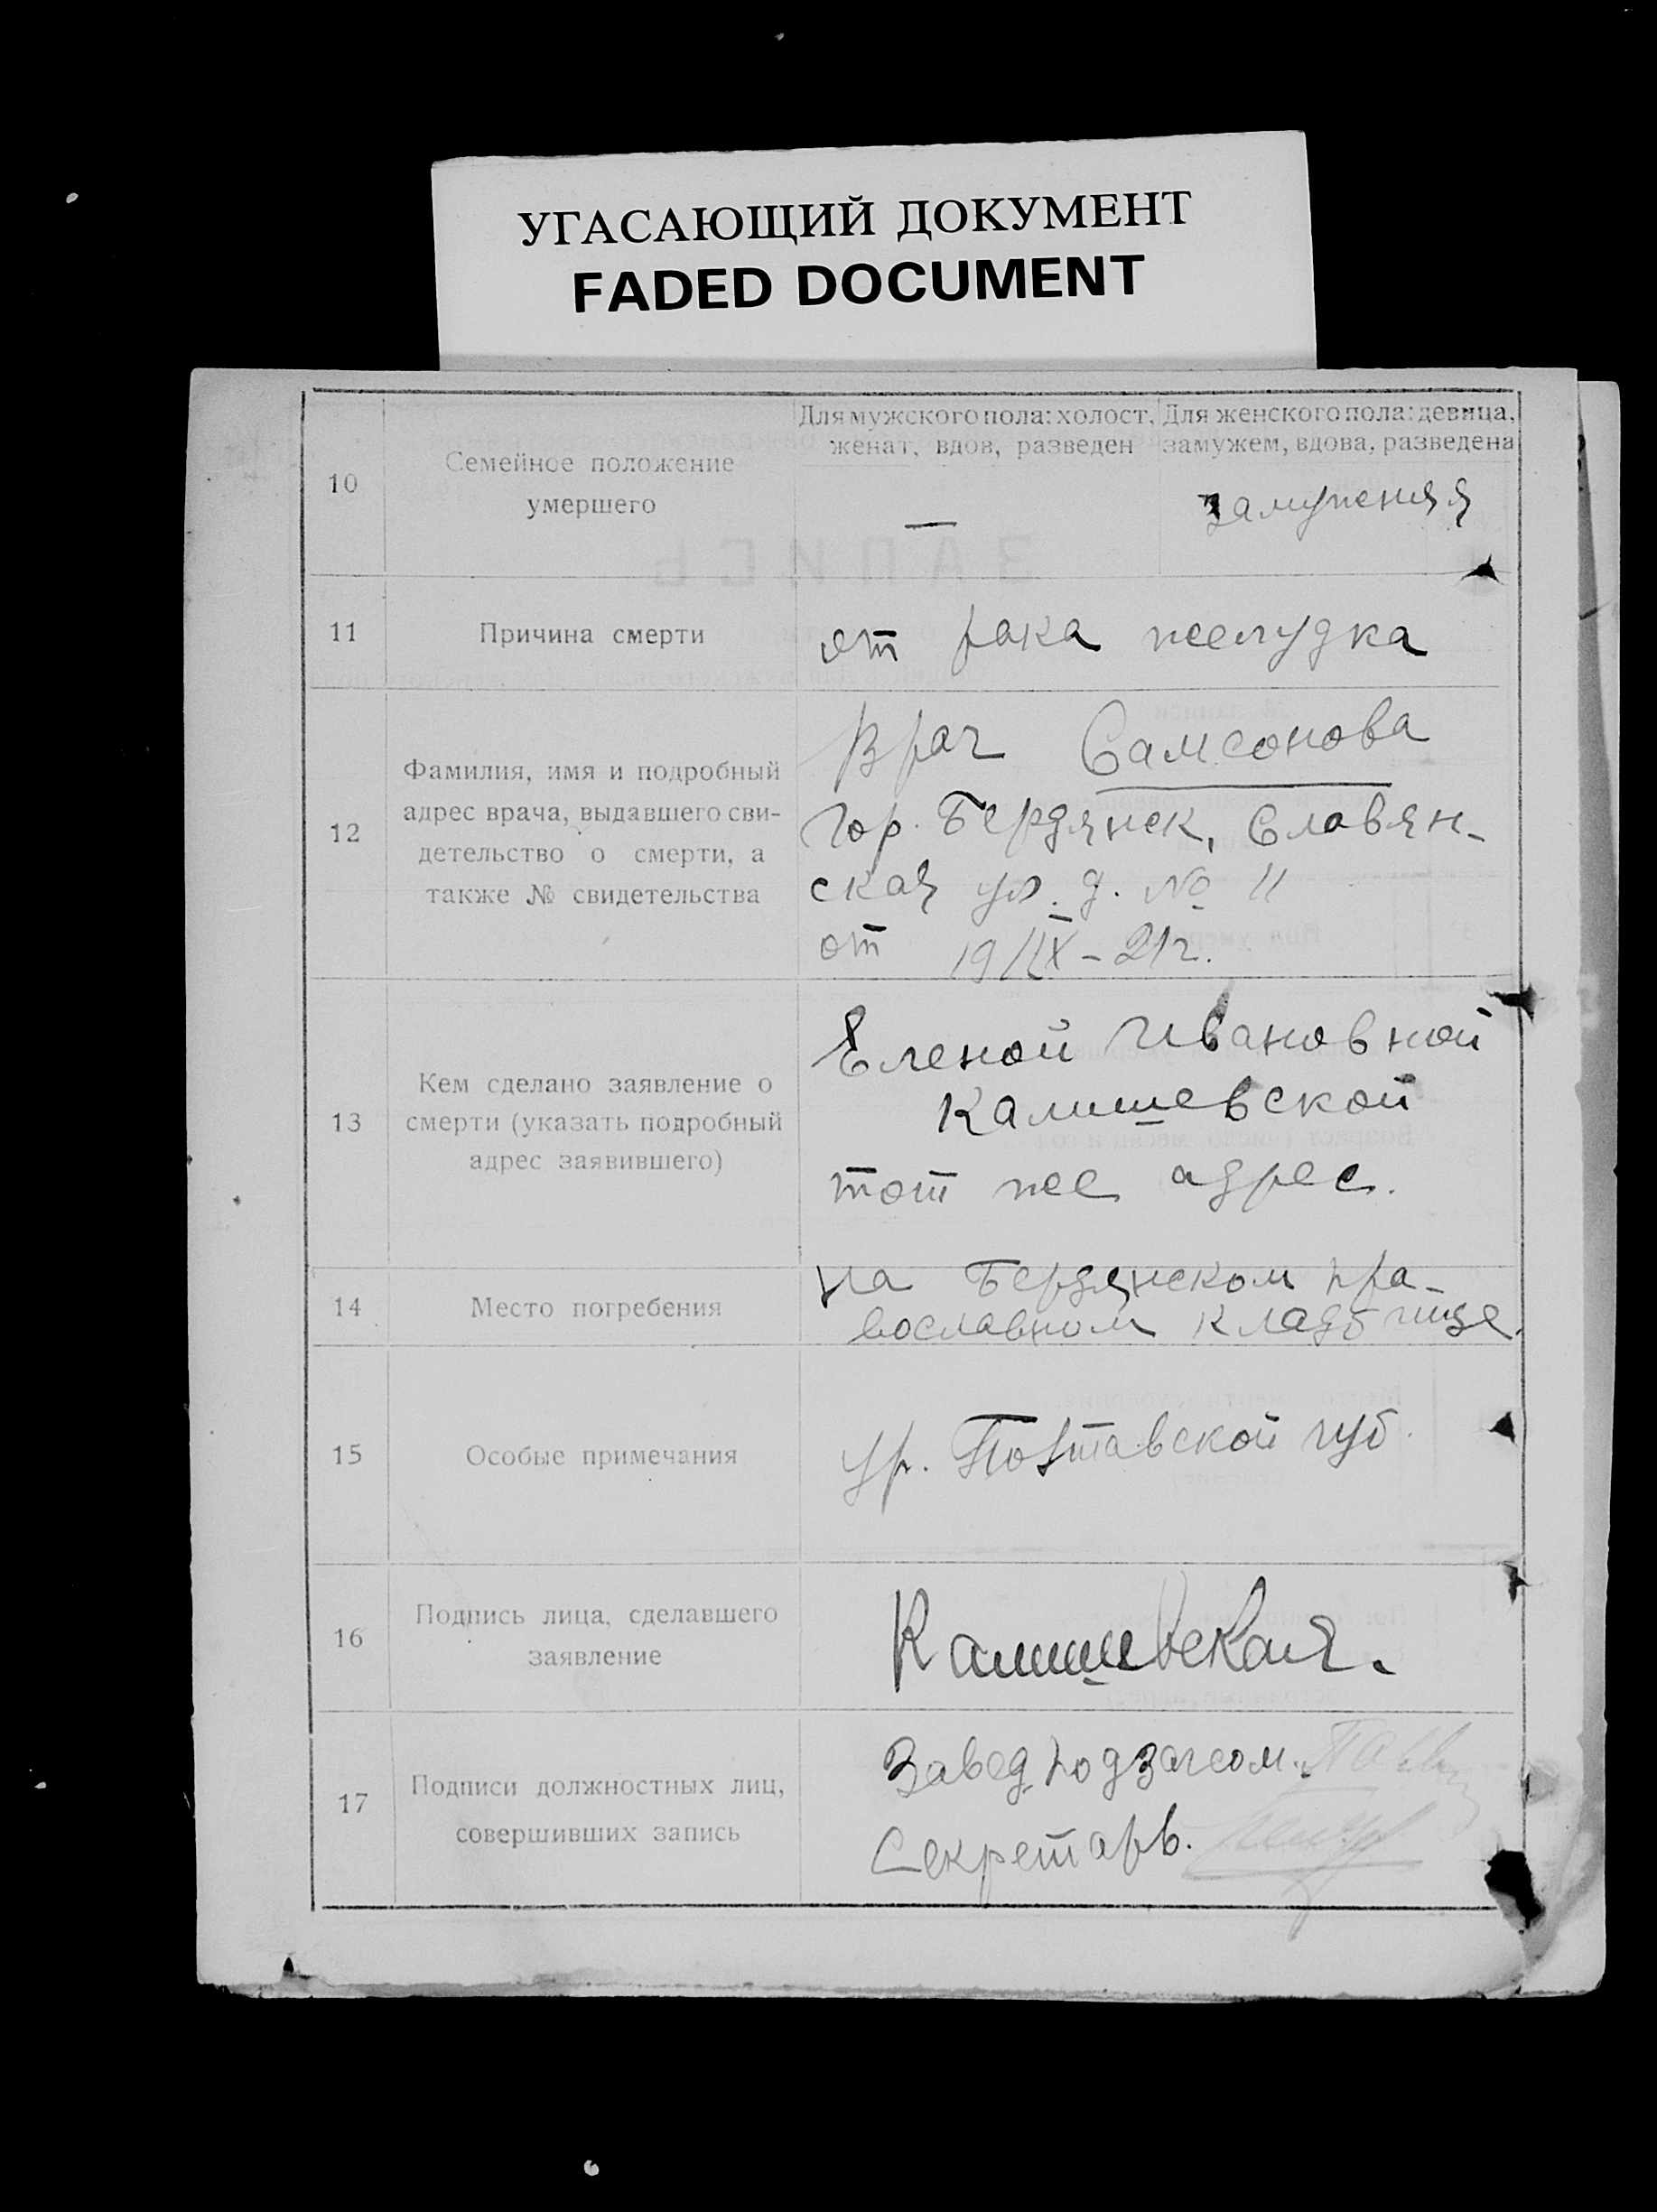 УГАСАЮЩИЙ ДОКУМЕНТ
FADED DOCUMENT
10
Семейное положение
умершего
Для мужского пола: холост,
женат, вдов, разведен
—
Для женского пола: девица,
замужем, вдова, разведена
замужняя
11
Причина смерти
от рака желудка
12
Фамилия, имя и подробный
адрес врача, выдавшего сви-
детельство о смерти, а
также № свидетельства
Врач Самсонова
гор. Бердянск, Славян-
ская ул. д. № 11
от 19/IX – 21г.
13
Кем сделано заявление о
смерти (указать подробный
адрес заявившего)
Еленой Ивановной
Калишевской
тот же адрес.
14
Место погребения
на Бердянском пра-
вославном кладбище.
15
Особые примечания
ур. Полтавской губ.
16
Подпись лица, сделавшего
заявление
Калишевская.
17
Подписи должностных лиц,
совершивших запись
Завед. подзагсом
Секретарь.